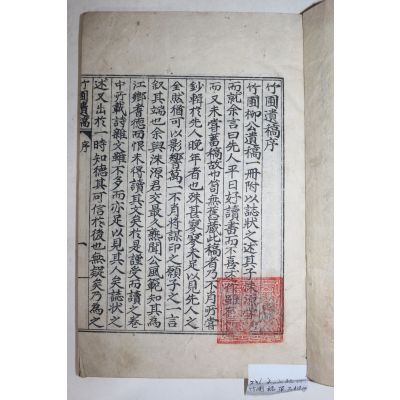 竹圃遺稿序
竹圃柳公遺稿一冊附以誌狀之述其子洙源
而就余言曰先人平日好讀書而不喜
而又未嘗蓄稿故巾笥無舊藏此稿者乃不肖所嘗
鈔輯於先人晚年者也殊甚寥寥未足以見先人之
全然猶可以影響萬一不肖將謀印之願子之一言
叙其端也余與洙源君交最久熟聞公風範知其爲
江鄉耆德而恨未得讀其文矣於是謹受而讀之卷
中所載詩雜文雖不多而亦足以見其人矣誌狀之
述又出於一時知德其可信於後也無疑矣乃爲之
竹圃遺稿 序 一